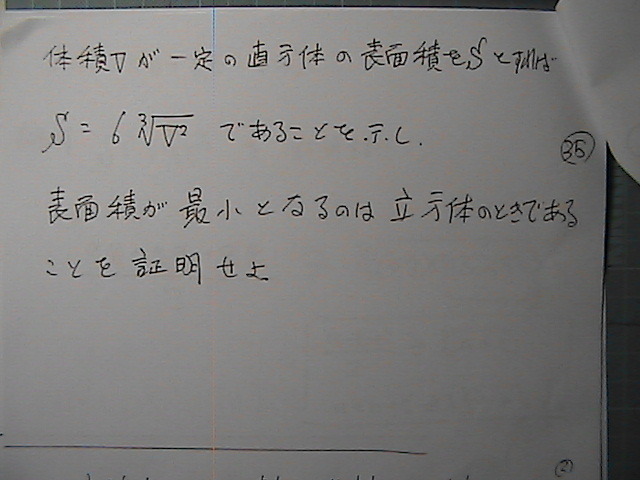 体積Vが一定の直方体の表面積をSとすれば
S = 6 ∛V² であることを示し、
㉟
表面積が最小となるのは立方体のときである
ことを証明せよ
②